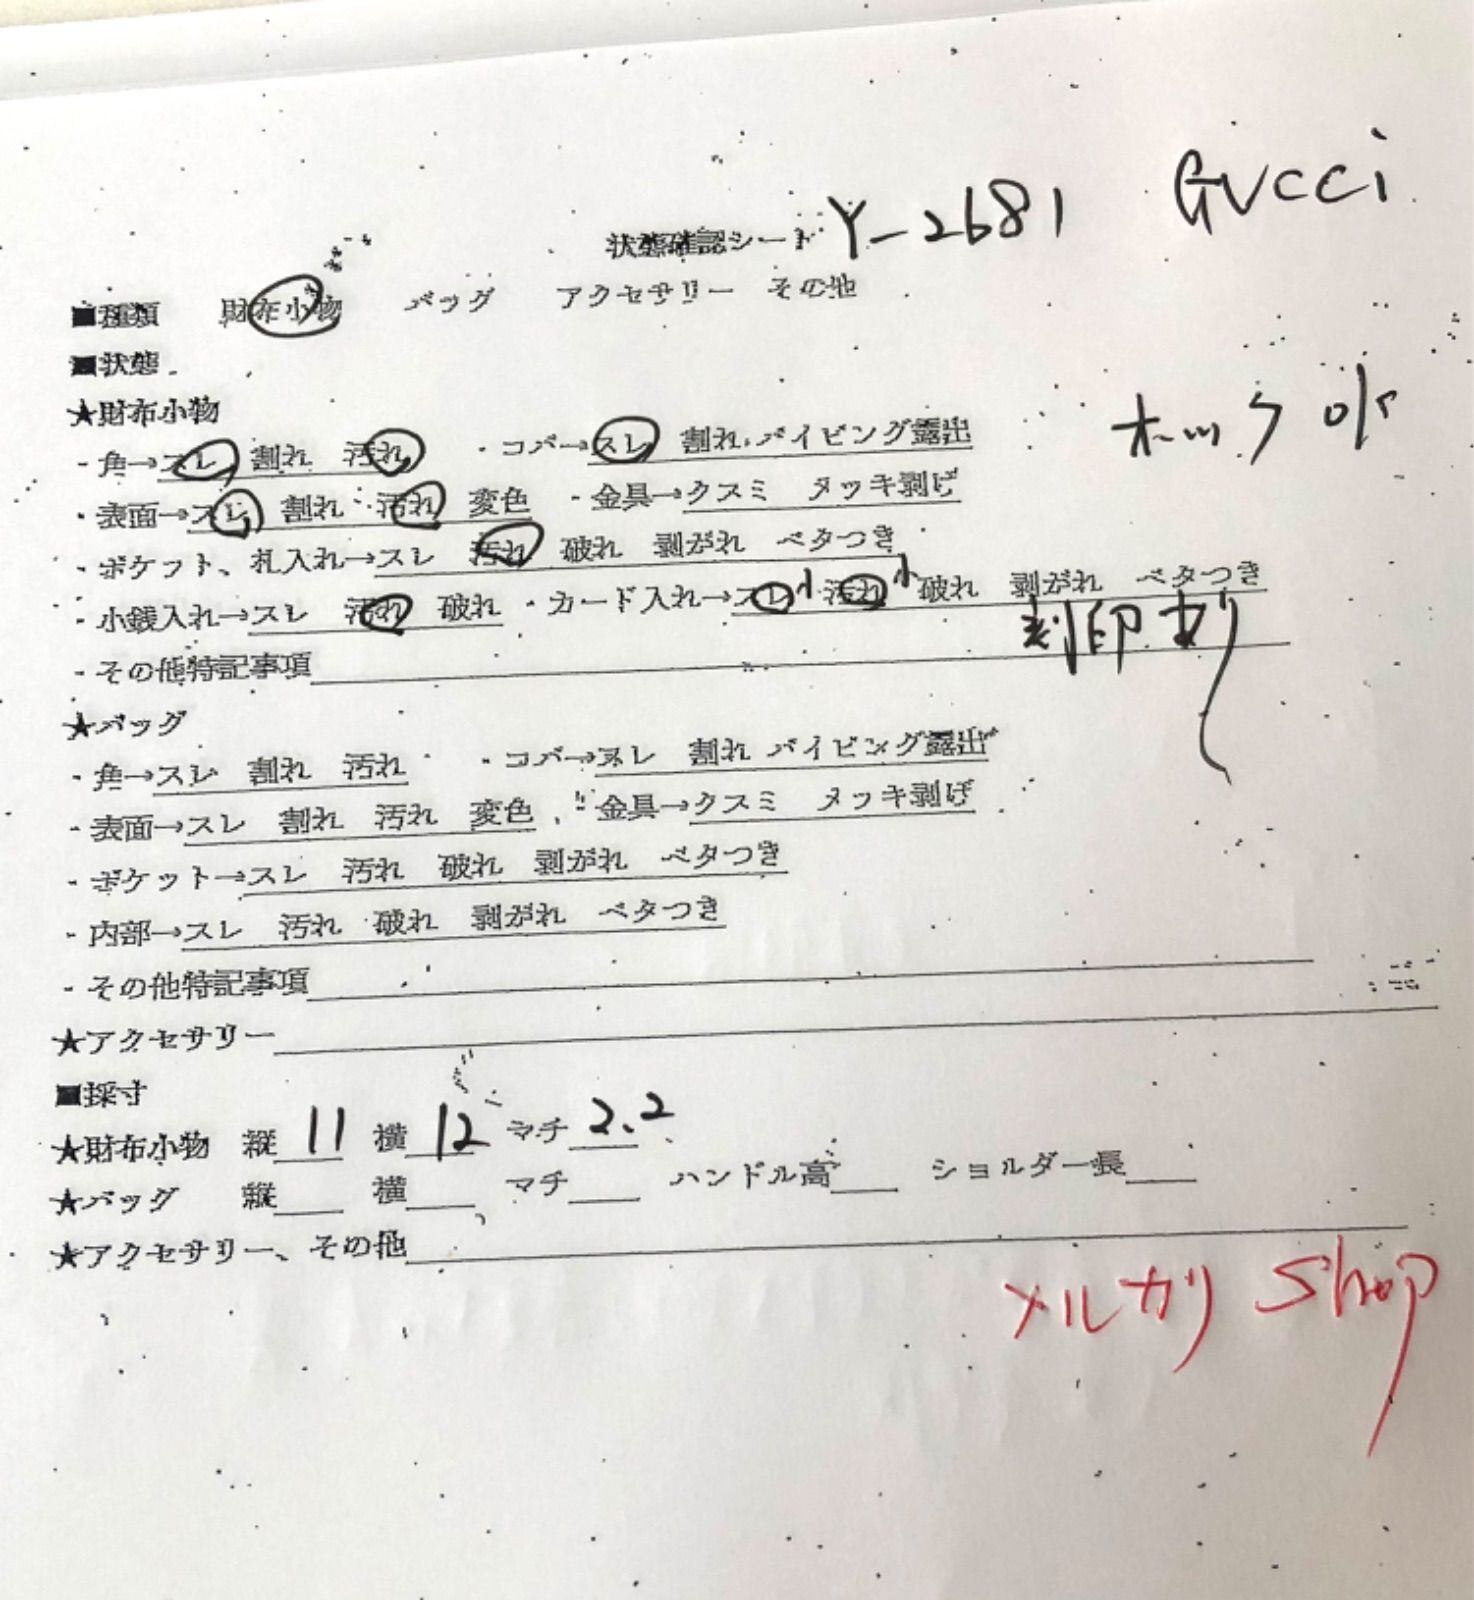 状態確認シート Y-2681 GUCCI
■種類 財布小物 バッグ アクセサリー その他
■状態
★財布小物
ホック ok
・角→スレ 割れ 汚れ ・コバ→スレ 割れ パイピング露出
・表面→スレ 割れ 汚れ 変色 ・金具→クスミ メッキ剥げ
・ポケット、札入れ→スレ 汚れ 破れ 剥がれ ベタつき
・小銭入れ→スレ 汚れ 破れ ・カード入れ→スレ小 汚れ小 破れ 剥がれ ベタつき
刻印あり
・その他特記事項
★バッグ
・角→スレ 割れ 汚れ ・コバ→スレ 割れ パイピング露出
・表面→スレ 割れ 汚れ 変色 ・金具→クスミ メッキ剥げ
・ポケット→スレ 汚れ 破れ 剥がれ ベタつき
・内部→スレ 汚れ 破れ 剥がれ ベタつき
・その他特記事項
★アクセサリー
■採寸
★財布小物 縦 11 横 12 マチ 2.2
★バッグ 縦 横 マチ ハンドル高 ショルダー長
★アクセサリー、その他
メルカリ Shop